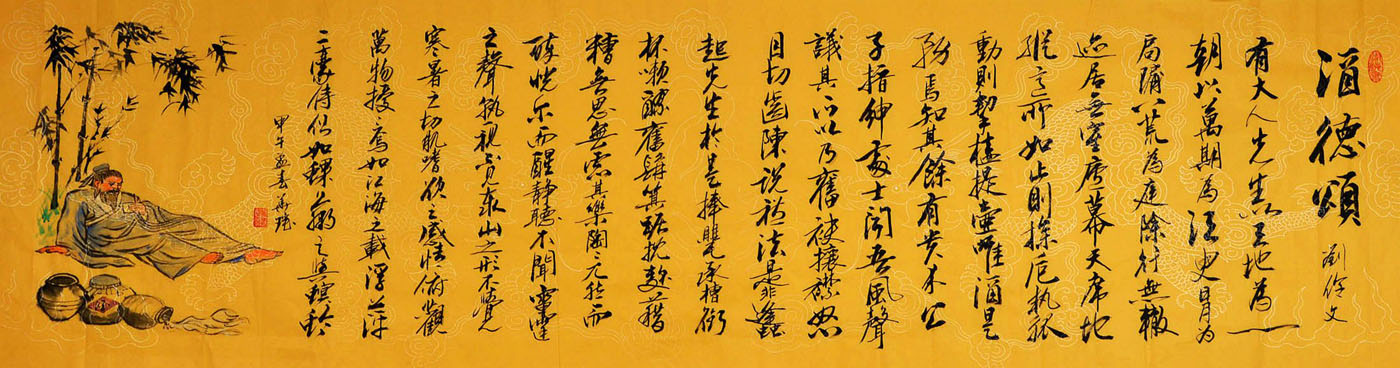 酒德頌
劉伶文
有大人先生以天地為一
朝以萬期為須臾日月为
扃牖八荒為庭除行無轍
迹居无室廬幕天席地
縱意所如止則操卮執觚
動則挈榼提壺唯酒是
務焉知其餘有贵介公
子搢紳處士闻吾風聲
議其所以乃奮袂攘襟怒
目切齒陳說礼法是非蠭
起先生於是捧甖承槽銜
杯漱醪奮髯箕踞枕麴藉
糟無思無慮其樂陶々兀然而
醉恍尔而醒静聽不聞雷霆
之聲孰視不見泰山之形不覺
寒暑之切肌嗜欲之感情俯觀
萬物擾々焉如江海之載浮萍
二豪侍侧如蜾蠃之與螟蛉
甲午孟春